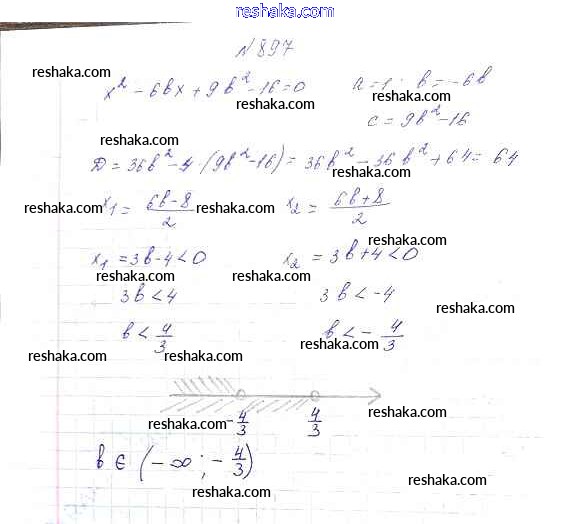 reshaka.com
№ 897
reshaka.com
x² - 6bx + 9b² - 16 = 0 a = 1; b = -6b
reshaka.com reshaka.com
c = 9b² - 16
reshaka.com
D = 36b² - 4·(9b² - 16) = 36b² - 36b² + 64 = 64
reshaka.com x₁ = (6b - 8)/2 reshaka.com x₂ = (6b + 8)/2 reshaka.com
reshaka.com
x₁ = 3b - 4 < 0 x₂ = 3b + 4 < 0
reshaka.com reshaka.com
3b < 4 3b < -4
reshaka.com
b < 4/3 b < - 4/3
reshaka.com reshaka.com reshaka.com
reshaka.com -4/3 4/3 reshaka.com
b ∈ (-∞; - 4/3)
reshaka.com
reshaka.com